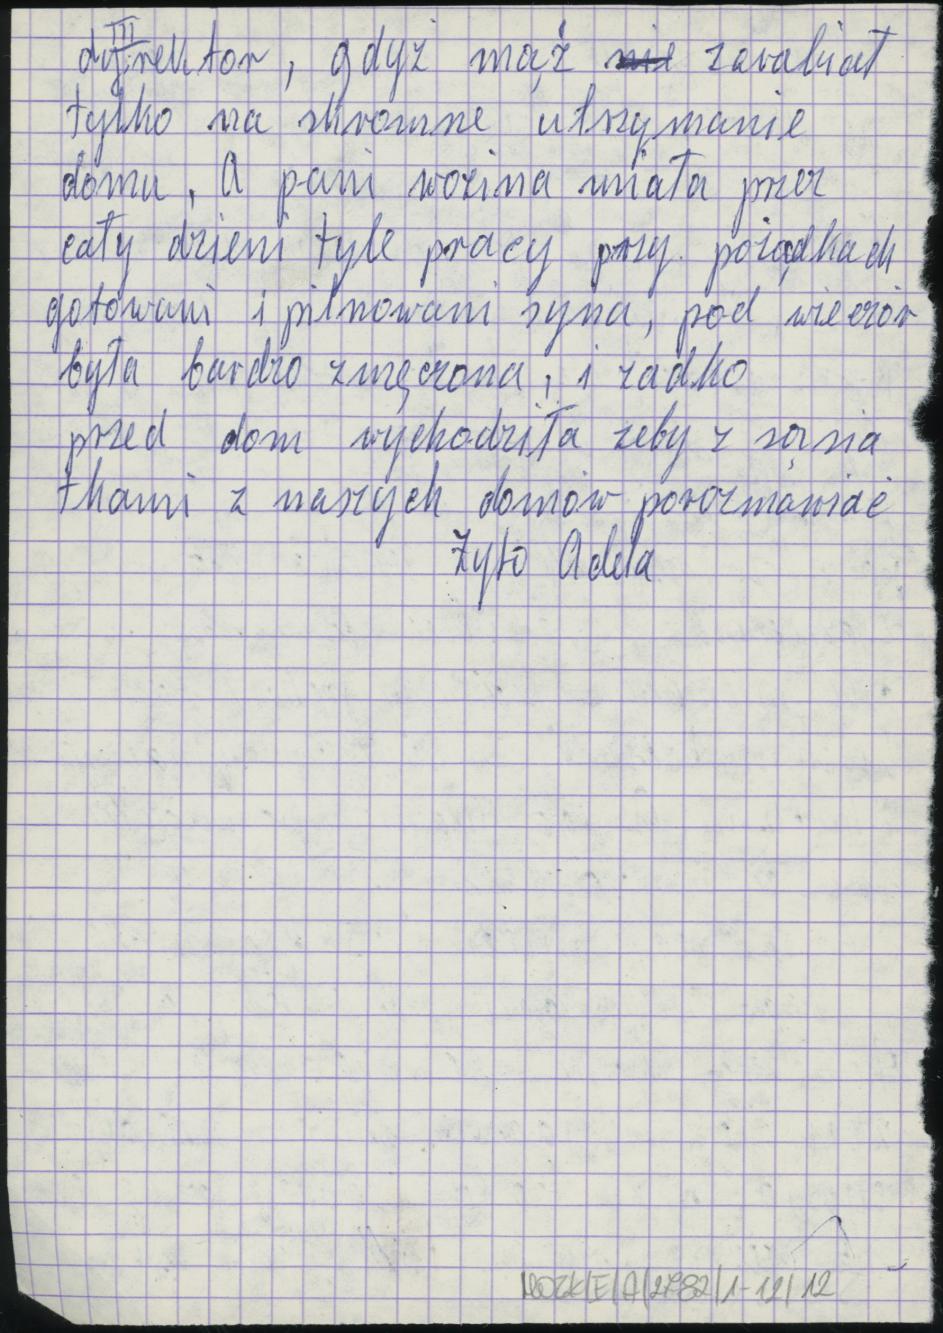 III
dyrektor, gdyż mąż nie zarabiał
tylko na skromne utrzymanie
domu, A pani woźina miała przez
cały dzień tyle pracy przy. pożądkach
gotowani i pilnowani syna, pod wieczór
była bardzo zmęczona, i żadko
przed dom wychodziła żeby z sąsia
tkami z naszych domów porozmawiać
Żyło Adela
MOZK/E/A/2782/1-12/12